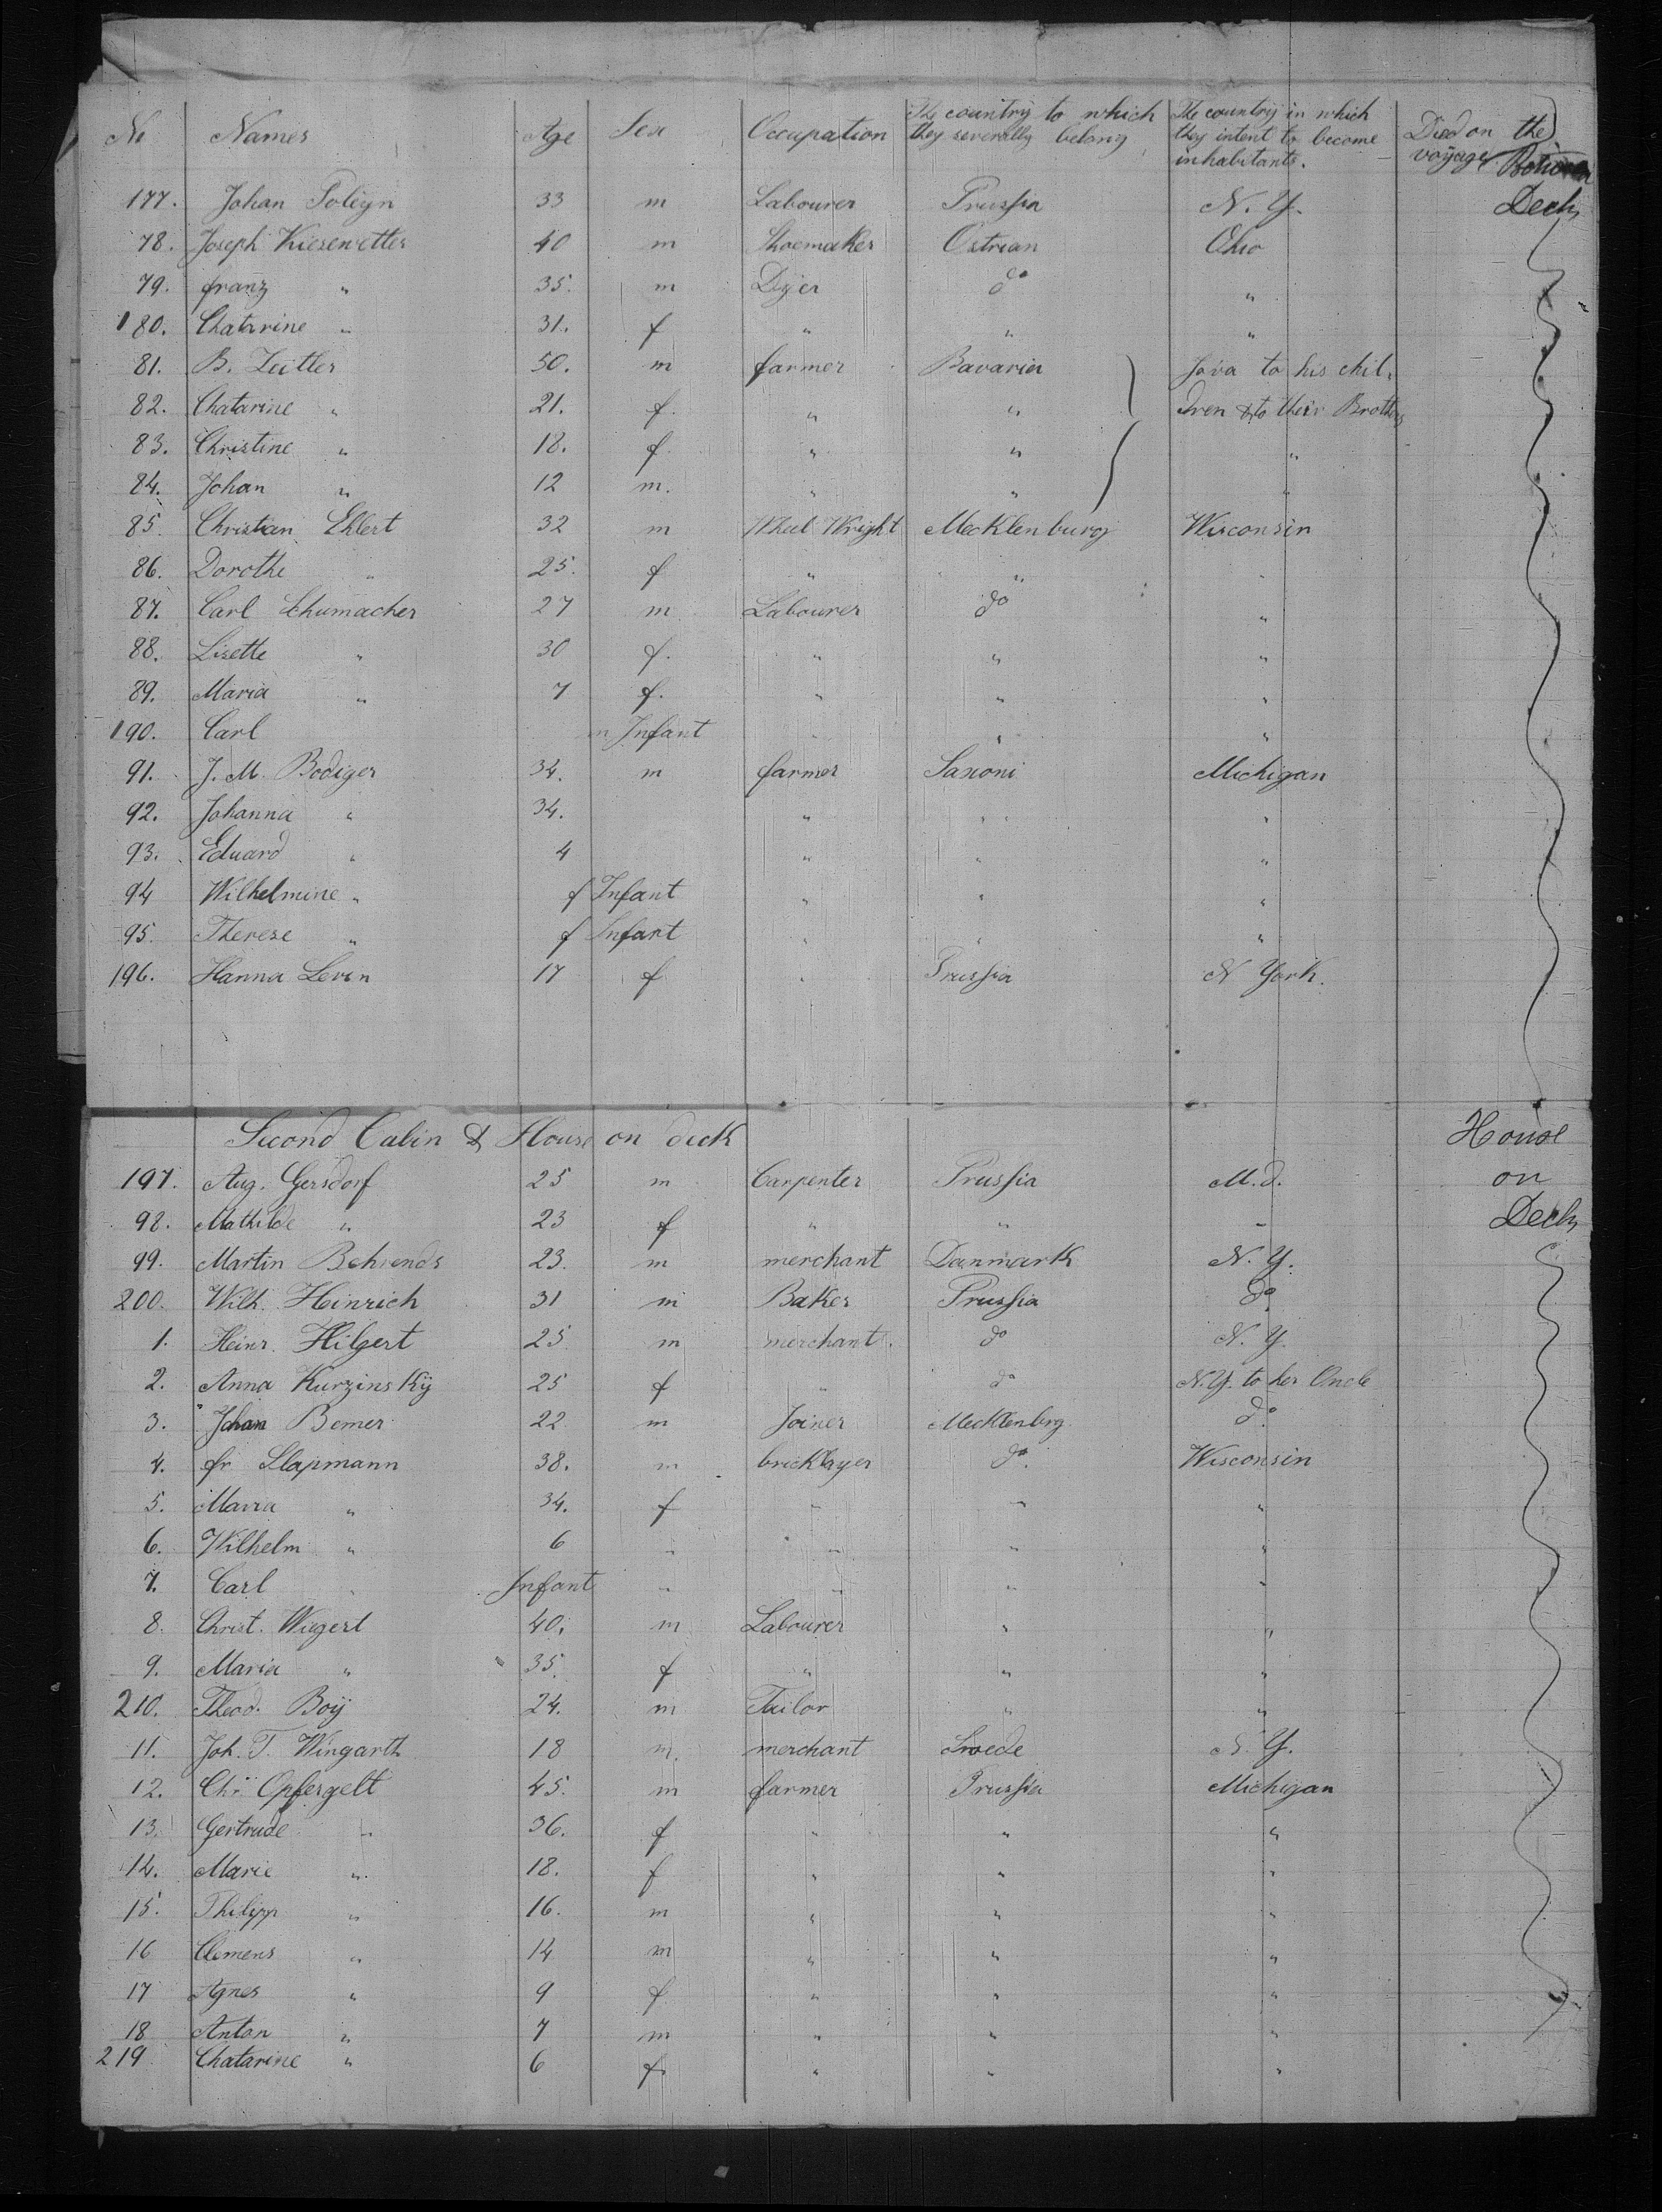 No Names Age Sex Occupation The country to which they severally belong The country in which they intent to become inhabitants. Died on the voyage
Deck
177. Johan Poleyn 33 m Labourer Prussia N. Y.
78. Joseph Kiesewetter 40 m Shoemaker Ostrian Ohio
79. franz " 35. m Dyer do "
180. Chatarine " 31. f " " "
81. B. Zeitler 50. m farmer Bavaria Jova to his chil,
82. Chatarine " 21. f. " " dren & to their Brothers
83. Christine " 18. f. " " "
84. Johan " 12 m. " " "
85. Christian Ehlert 32 m Wheel Wright Mecklenburg Wisconsin
86. Dorothe " 25. f " " "
87. Carl Schumacher 27 m Labourer do "
88. Lisette " 30 f. " " "
89. Maria " 7 f. " " "
190. Carl m Infant " " "
91. J. M. Bodiger 34. m farmer Saxoni Michigan
92. Johanna " 34. " " "
93. Eduard " 4 " " "
94 Wilhelmine " f Infant " " "
95. Therese " f Infant " " "
196. Hanna Levin 17 f " Prussia N York.
Second Cabin & House on deck
House on Deck
197. Aug. Gersdorf 25 m Carpenter Prussia M.d.
98. Mathilde " 23 f " " "
99. Martin Behrends 23. m merchant Danmark N. Y.
200. Wilh. Heinrich 31 m Baker Prussia do
1. Heinr. Hilgert 25 m merchant. do N. Y.
2. Anna Kurzinsky 25 f " do N.Y. to her Oncle
3. Johan Bemer 22 m Joiner Mecklenbrg do
4. fr Slapmann 38. m bricklayer do Wisconsin
5. Maria " 34. f " " "
6. Wilhelm " 6 " " " "
7. Carl " Infant " " " "
8. Christ. Wiegert 40. m Labourer " "
9. Maria " 35. f " " "
210. Theod. Boy 24. m Tailor " "
11. Joh. T. Wingarth 18 m. merchant Swede N. Y.
12. Chr. Opfergelt 45. m farmer Prussia Michigan
13. Gertrude " 36. f " " "
14. Marie " 18. f " " "
15. Philipp " 16. m " " "
16 Clemens " 14 m " " "
17 Agnes " 9 f " " "
18 Anton " 7 m " " "
219 Chatarine " 6 f. " " "